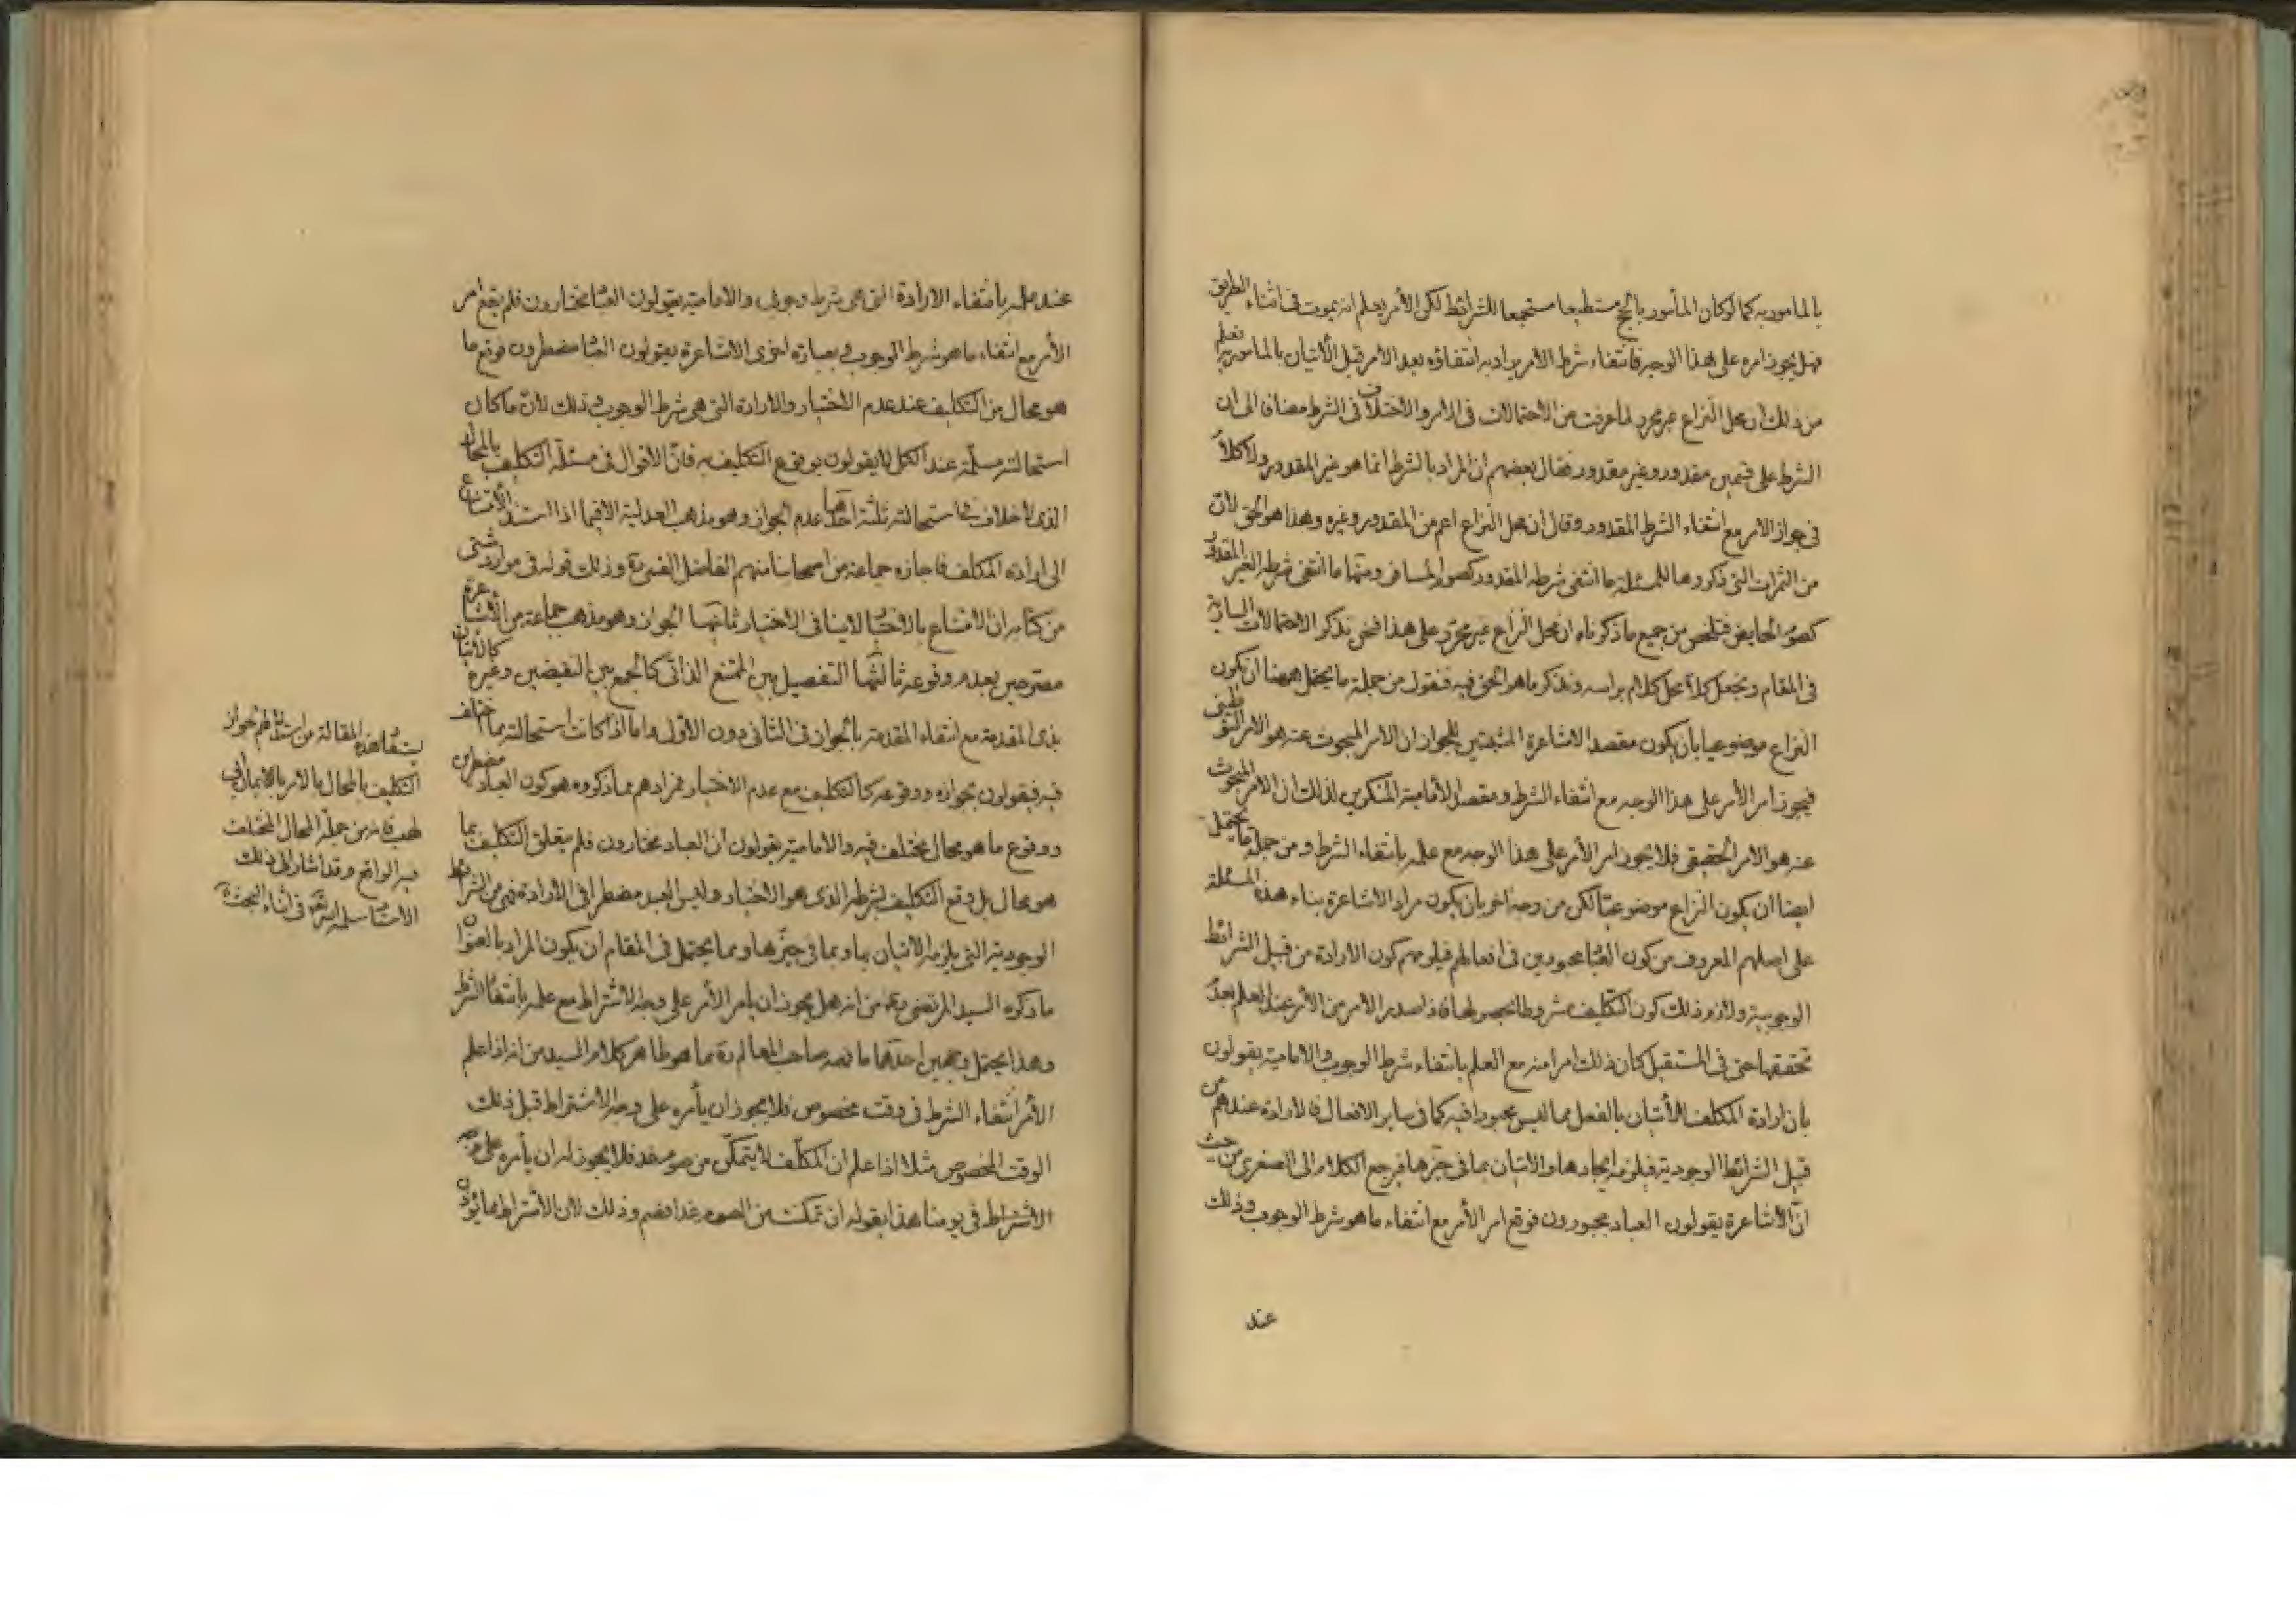 بالمامور به كما لو كان المأمور بالحج مستطيعا مستجمعا للشرائط لكن الأمر يعلم انه يموت فى اثناء الطريق
فهل يجوز امره على هذا الوجه فانتفاء شرط الامر يراد به انتفاؤه بعد الامر قبل الأتيان بالمامور به فعلم
من ذلك ان محل النزاع غير محرر لما عرفت من الاحتمالات فى الامر والاختلاف فى الشرط مضافا الى ان
الشرط على قسمين مقدور وغير مقدور فقال بعضهم ان المراد بالشرط انما هو غير المقدور ولا كلام
فى جواز الامر مع انتفاء الشرط المقدور وقال ان محل النزاع اعم من المقدور وغيره وهذا هو الحق لان
من الثمرات التى ذكروها للمسئلة ما انتفى شرطه المقدور كصوم المسافر ومنها ما انتفى شرطه الغير المقدور
كصوم الحايض فتلخص من جميع ما ذكرناه ان محل النزاع غير محرر على هذا فنحن نذكر الاحتمالات السارية
فى المقام ونجعل كلا محل كلام براسه ونذكر ما هو الحق فيه فنقول من جملة ما يحتمل ههنا ان يكون
النزاع موضوعيا بان يكون مقصد الاشاعرة المثبتين للجواز ان الامر المبحوث عنه هو الامر التوطينى
فيجوز امر الأمر على هذا الوجه مع انتفاء الشرط ومقصد الأمامية المنكرين لذلك ان الامر المبحوث
عنه هو الامر الحقيقى فلا يجوز امر الأمر على هذا الوجه مع علمه بانتفاء الشرط ومن جملة ما يحتمل
ايضا ان يكون النزاع موضوعيا لكن من وجه اخر بان يكون مراد الاشاعرة بناء هذه المسئلة
على اصلهم المعروف من كون العباد مجبورين فى افعالهم فيلزمهم كون الارادة من قبيل الشرائط
الوجوبية ولازم ذلك كون التكليف مشروطا بحصولها فاذا صدر الامر من الأمر عند العلم بعدم
تحققها حتى فى المستقبل كان ذلك امرا منه مع العلم بانتفاء شرط الوجوب والامامية يقولون
بان ارادة المكلف للأتيان بالفعل مما ليس مجبورا فيه كما فى ساير الافعال فالارادة عندهم من
قبيل الشرائط الوجودية فيلزم ايجادها والاتيان بما فى حيزها فيرجع الكلام الى الصغرى من حيث
ان الاشاعرة يقولون العباد مجبورون فوقع امر الأمر مع انتفاء ما هو شرط الوجوب وذلك
عند
عند علمه بانتفاء الارادة التى هى شرط وجوبى والامامية يقولون العباد مختارون فلم يقع امر
الأمر مع انتفاء ما هو شرط الوجوب وبعبارة اخرى الاشاعرة يقولون العباد مضطرون فوقع ما
هو محال من التكليف عند عدم الاختيار والارادة التى هى شرط الوجوب وذلك لان ما كان
استحالته مسلمة عند الكل لا يقولون بوقوع التكليف به فان الاقوال فى مسئلة التكليف بالمحال
الذى لا خلاف فى استحالته ثلثة احدها عدم الجواز وهو مذهب العدلية الا فيما اذا استند الامتناع
الى ارادة المكلف فاجازه جماعة من اصحابنا منهم الفاضل القمى ره وذلك قوله فى موارد شتى
من كتابه ان الامتناع بالاختيار لا ينافى الاختيار ثانيها الجواز وهو مذهب جماعة من الاشاعرة
معترفين بعدم وقوعه ثالثها التفصيل بين الممتنع الذاتى كالجمع بين النقيضين وغيره كالأتيان
بذى المقدمة مع انتفاء المقدمة بالجواز فى الثانى دون الاول واما اذا كانت استحالته مما اختلف
فيه فيقولون بجوازه ووقوعه كالتكليف مع عدم الاختيار فمرادهم مما ذكروه هو كون العباد مضطرين
ووقوع ما هو محال مختلف فيه والامامية يقولون ان العباد مختارون فلم يتعلق التكليف بما
هو محال بل وقع التكليف بشرطه الذى هو الاختيار وليس العبد مضطرا فى الارادة فهى من الشرائط
الوجودية التى يلزمه الاتيان بها وبما فى حيزها ومما يحتمل فى المقام ان يكون المراد بالعنوان
ما ذكره السيد المرتضى ره من انه هل يجوز ان يامر الأمر على وجه الاشتراط مع علمه بانتفاء الشرط
وهذا يحتمل وجهين احدهما ما فهمه صاحب المعالم ره مما هو ظاهر كلام السيد من انه اذا علم
الأمر انتفاء الشرط فى وقت مخصوص فلا يجوز ان يأمره على وجه الاشتراط قبل ذلك
الوقت المخصوص مثلا اذا علم ان المكلف لا يتمكن من صوم غد فلا يجوز له ان يأمره على وجه
الاشتراط فى يومنا هذا بقوله ان تمكنت من الصوم غدا فصم وذلك لان الأشتراط مما يؤذن
يستفاد هذه المقالة من لجواز
التكليف بالمحال بالامر بالايمان لابى
لهب فانه من جملة المحال المختلف
فيه الواقع وقد اشار الى ذلك
الاستاد سلمه الله فى اثناء البحث